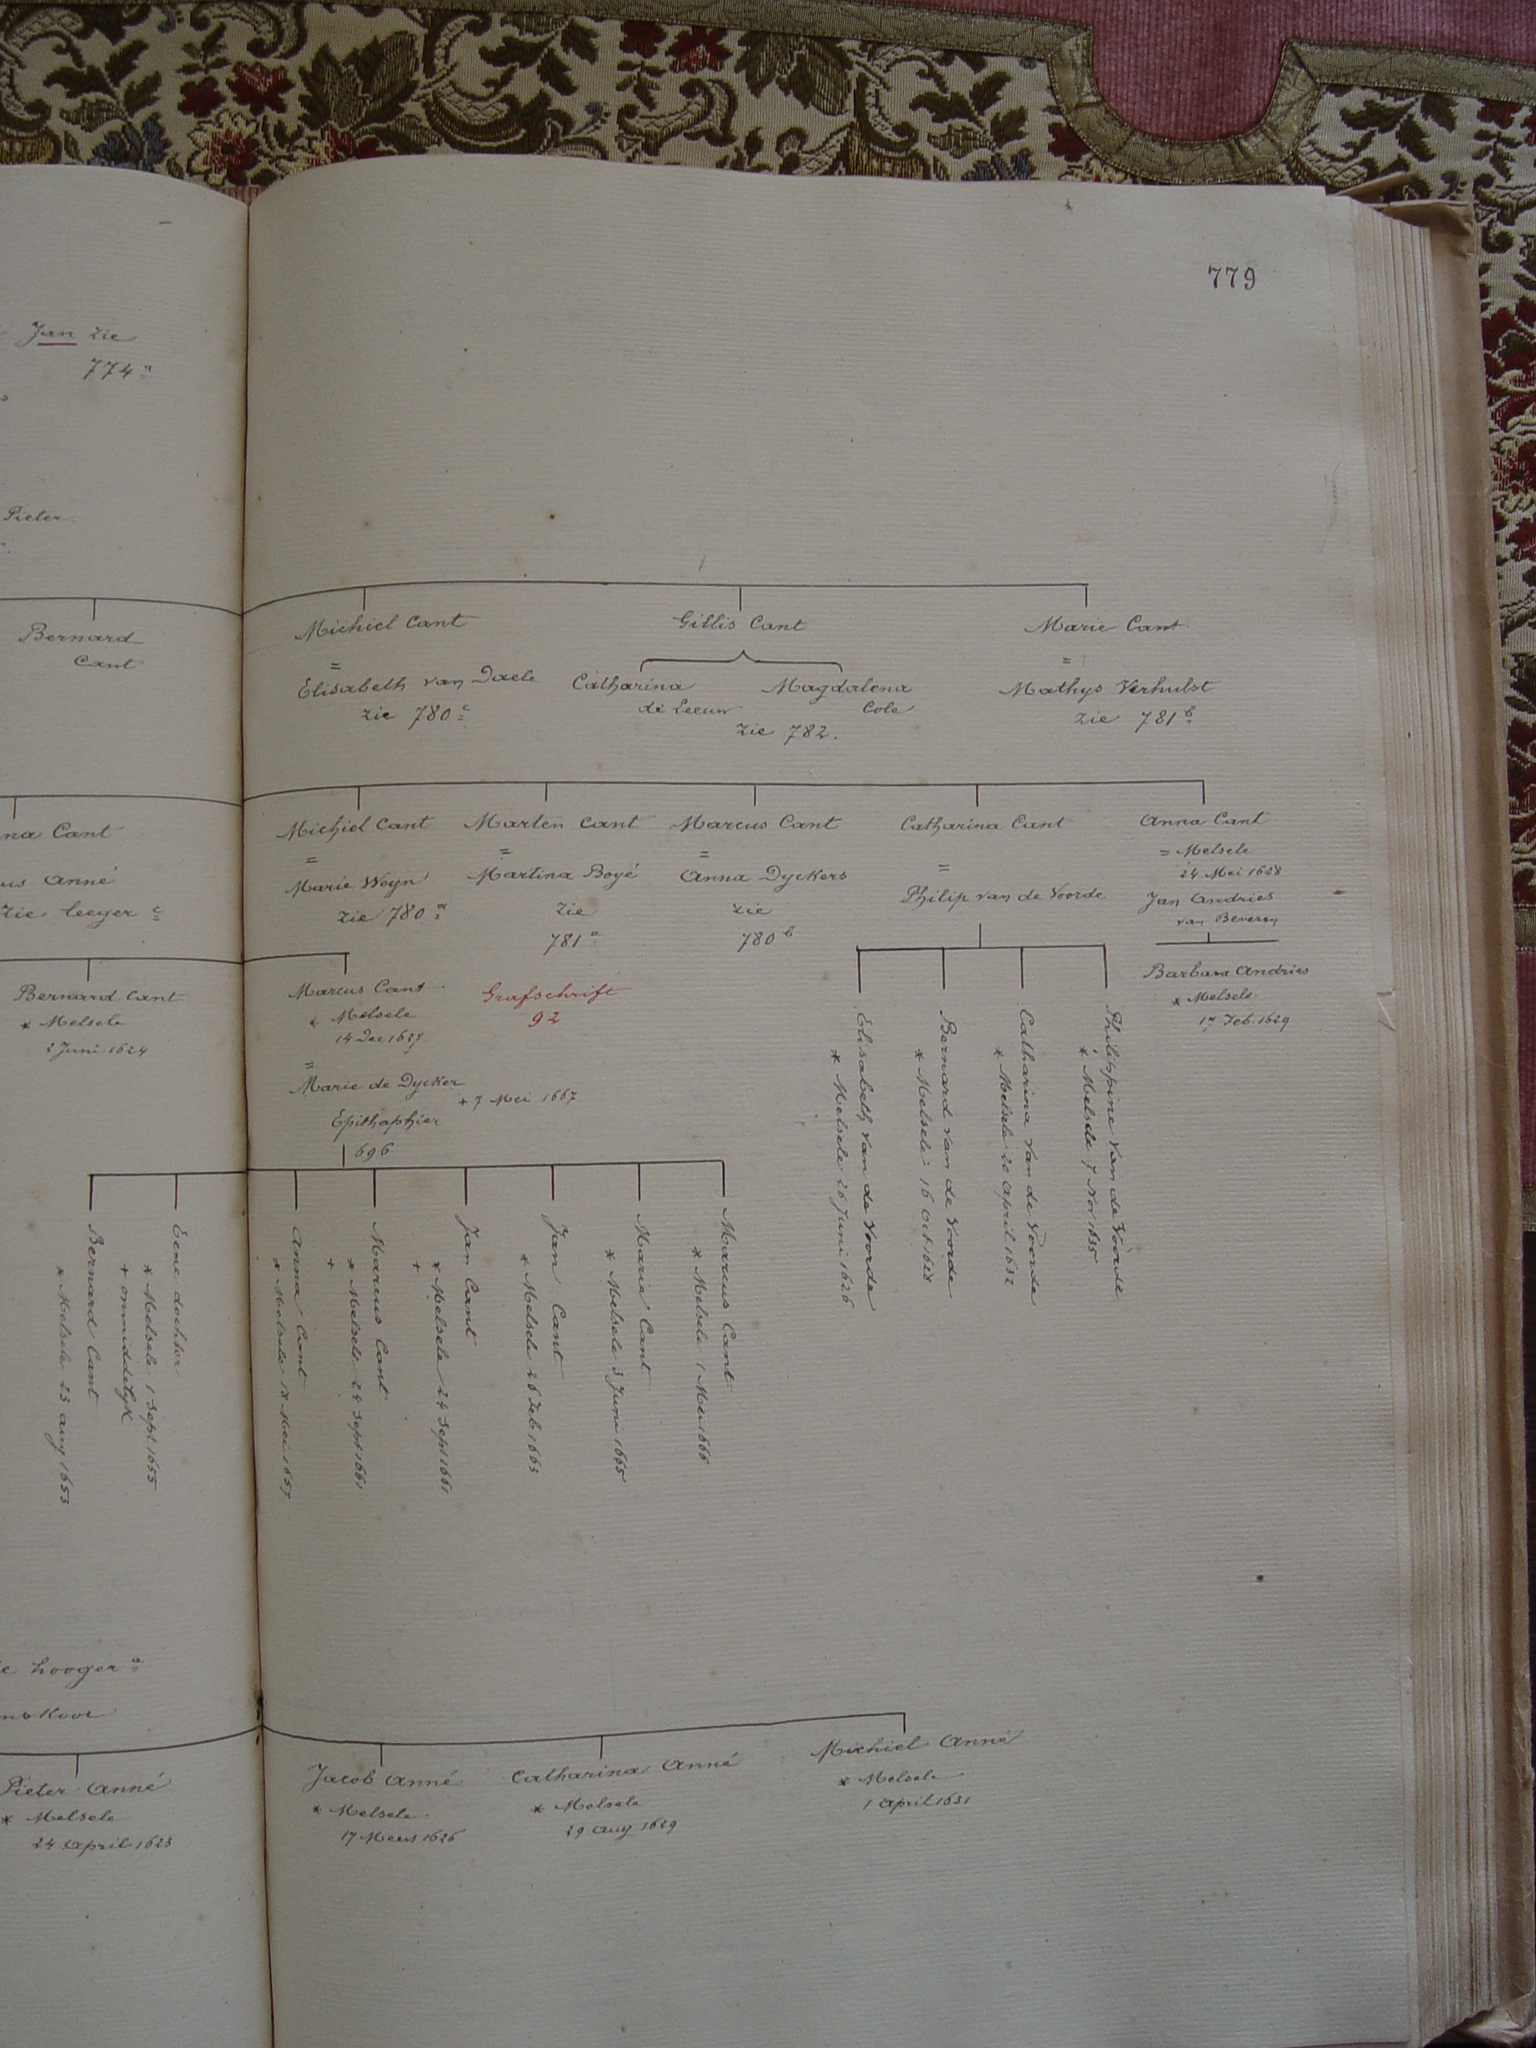 779
Jan zie
774ª
Pieter.
Bernard
Cant
Michiel Cant
=
Elisabeth van Daele
zie 780 c
Gillis Cant
Catharina
de Leeuw
Magdalena
Cole
zie 782.
Marie Cant
=
Mathys Verhulst
zie 781 b
na Cant
us Anné
zie leeger c
Michiel Cant
=
Marie Weyn
zie 780 a
Marten Cant
=
Martina Boyé
zie
781 a
Marcus Cant
=
Anna Dyckers
zie
780 b
Catharina Cant
=
Philip van de Voorde
Anna Cant
= Melsele
24 Mei 1628
Jan Andries
van Beveren
Bernard Cant
* Melsele
2 Juni 1624
Marcus Cant
* Melsele
14 Dec 1627
=
Marie de Dycker
+ 7 Mei 1667
Epithaphier
696
Grafschrift
92
Elisabeth van de Voorde
* Melsele 26 Juni 1626
Bernard van de Voorde
* Melsele 16 Oct 1628
Catharina van de Voorde
* Melsele 20 April 1632
Philippine van de Voorde
* Melsele 7 Nov 1635
Barbara Andries
* Melsele
17 Feb. 1629
Bernard Cant
* Melsele 23 Aug 1653
Eene dochter
* Melsele 1 Sept 1655
+ onmiddelyk
Anna Cant
* Melsele 18 Mei 1657
Marcus Cant
* Melsele 24 Sept 1661
+
Jan Cant
* Melsele 24 Sept 1661
+
Jan Cant
* Melsele 26 Feb 1663
Marie Cant
* Melsele 3 Juni 1665
Marcus Cant
* Melsele 1 Mei 1666
e hooger a
Pieter Anné
* Melsele
24 April 1623
Jacob Anné
* Melsele
17 Meert 1626
Catharina Anné
* Melsele
29 Aug 1629
Michiel Anné
* Melsele
1 April 1631